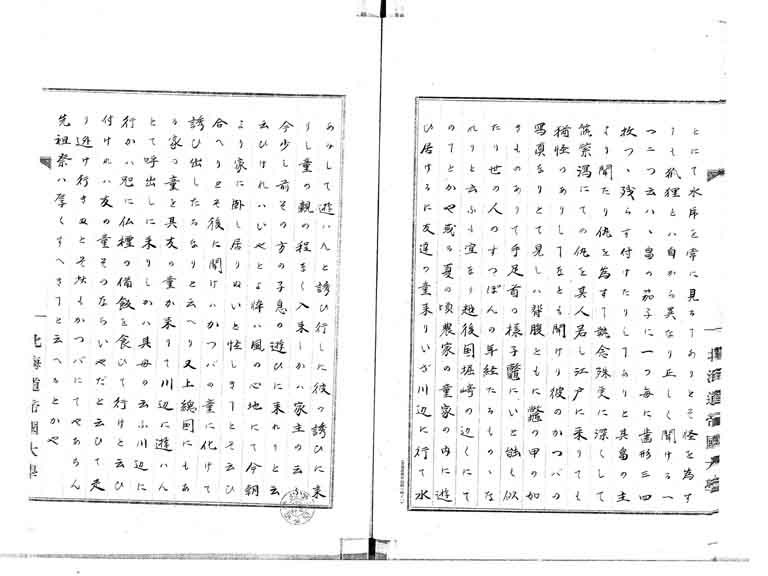 とにて水岸を常に見るてありとそ怪を為す
しも狐狸とハ自から異なり正しく聞ける一
つ二つ云ハヽ畠の茄子に一つ毎に歯形三四
枚つゝ残らす付けたりしてありと其畠の主
より聞たり仇を為すて執念殊更に深くして
筑紫潟にての仇を其人君し江戸に来りても
猶怪のありしてをとも聞けり彼のかつパの
写真なりとて見しハ背腹ともに鼈の甲の如
きものありて手足首の様子鼈にいと能も似
たり世の人のすつぽんの年経たるものゝな
れりと云ふも宜なり越後国堀崎の辺しにて
のてとかや或る夏の頃農家の童家の内に遊
ひ居けるに友達の童来りいざ川辺に行て水
あみして遊ハんと誘ひ行しに彼の誘ひに来
りし童の親の程なく入来しかハ家主の云ふ
今少し前その方の子息の遊ひに来れりと云
云ひけれハいやとよ悴ハ風の心地にて今朝
より家に臥し居りぬいと怪しきてとそ云ひ
合へりとそ後に聞けハかつパの童に化けて
誘ひ出したるなりと云へり又上総国にもあ
る家の童を其友の童か来りて川辺に遊ハん
とて呼出しに来りしかハ其母の云ふ川辺に
行かハ兇に仏檀の備飯を食ひて行けと云ひ
付けれハ友の童そのならいやだと云ひて走
り逃け行きぬとそ欤もかつパにてやあらん
先祖祭ハ厚くすへきてと云へるとかや
北海道帝国大学
北海道帝國大學